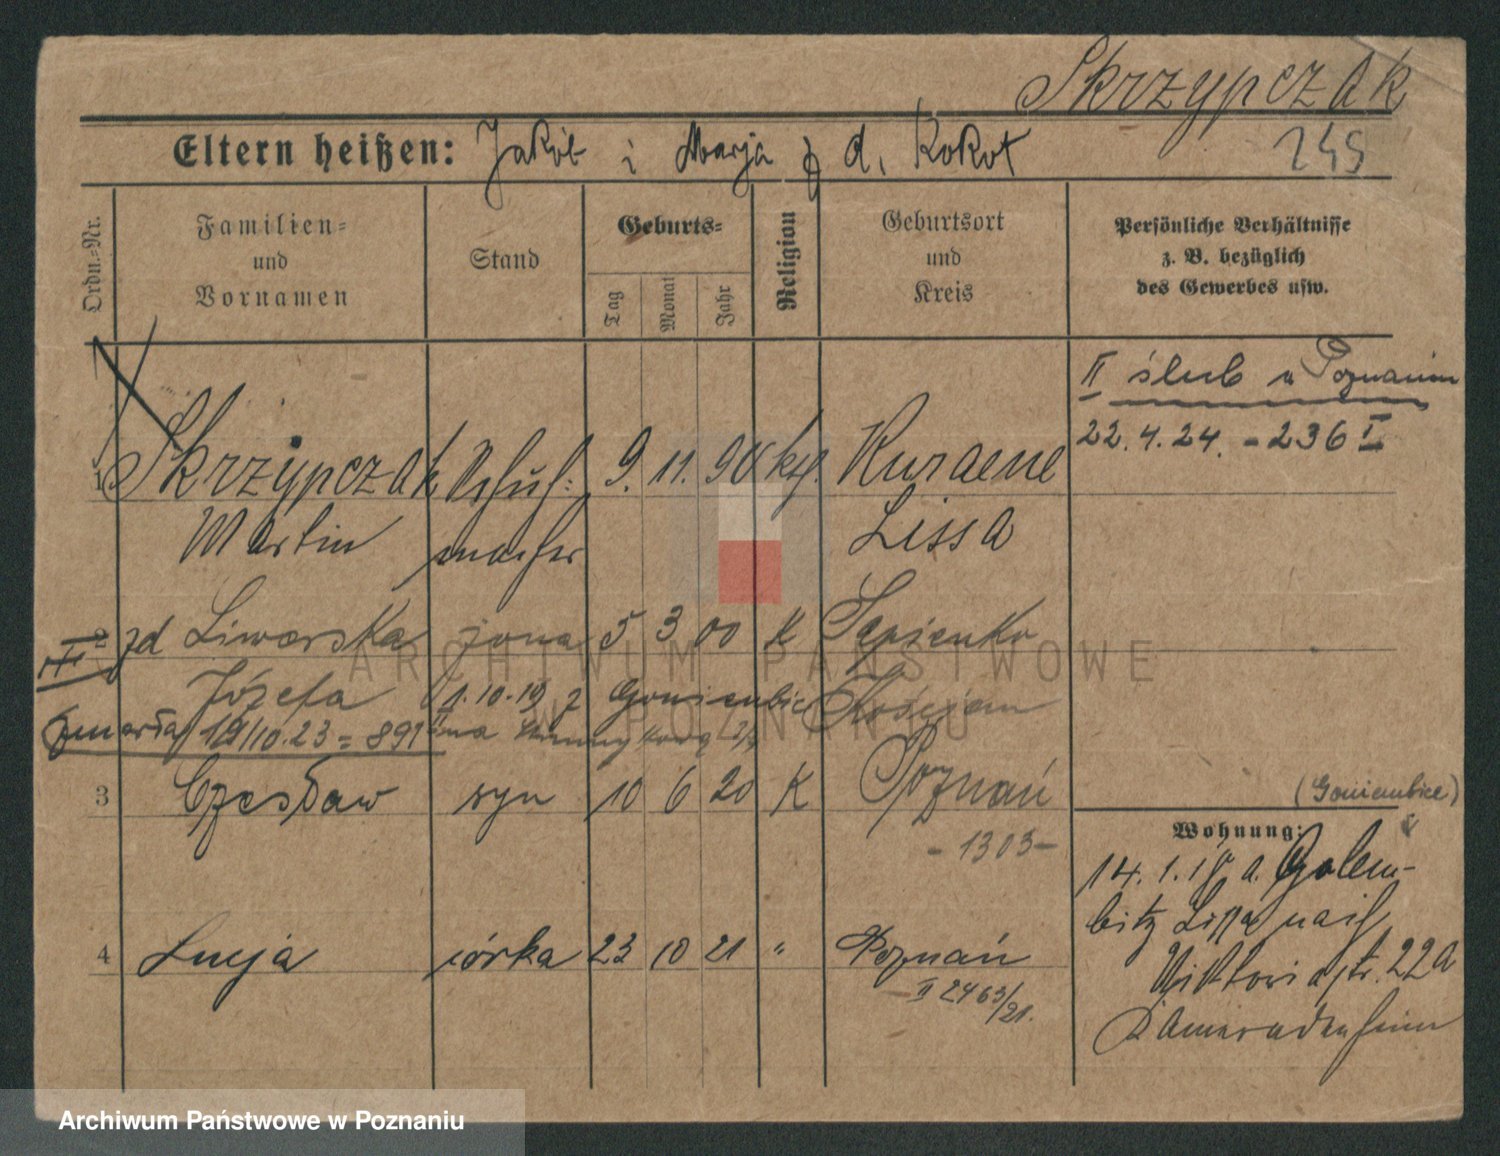 Skrzypczak
245
Eltern heißen: Jakób i Marja z d. Kokot
Ordn.-Nr.
Familien- und Vornamen
Stand
Geburts-
Tag
Monat
Jahr
Religion
Geburtsort und Kreis
Persönliche Verhältnisse z. B. bezüglich des Gewerbes usw.
II ślub w Poznaniu
22.4.24. - 236 I
1 Skrzypczak Schuh- 9. 11. 90 kath. Kursene
Martin macher Lissa
2 zd Liworska żona 5 3 00 K
Józefa 1.10.19 z Goniembic Kościan
zmarła 19/10.23 = 891 na
3 Czesław syn 10 6 20 K Poznań
- 1303 -
4 Lucja córka 23 10 21 " Poznań
II 2463/21.
(Goniembice)
Wohnung:
14.1.19 a. Golem-
bitz Lissa nach
Viktoriastr. 22a
Kameradenheim
ARCHIWUM PAŃSTWOWE
W POZNANIU
Archiwum Państwowe w Poznaniu